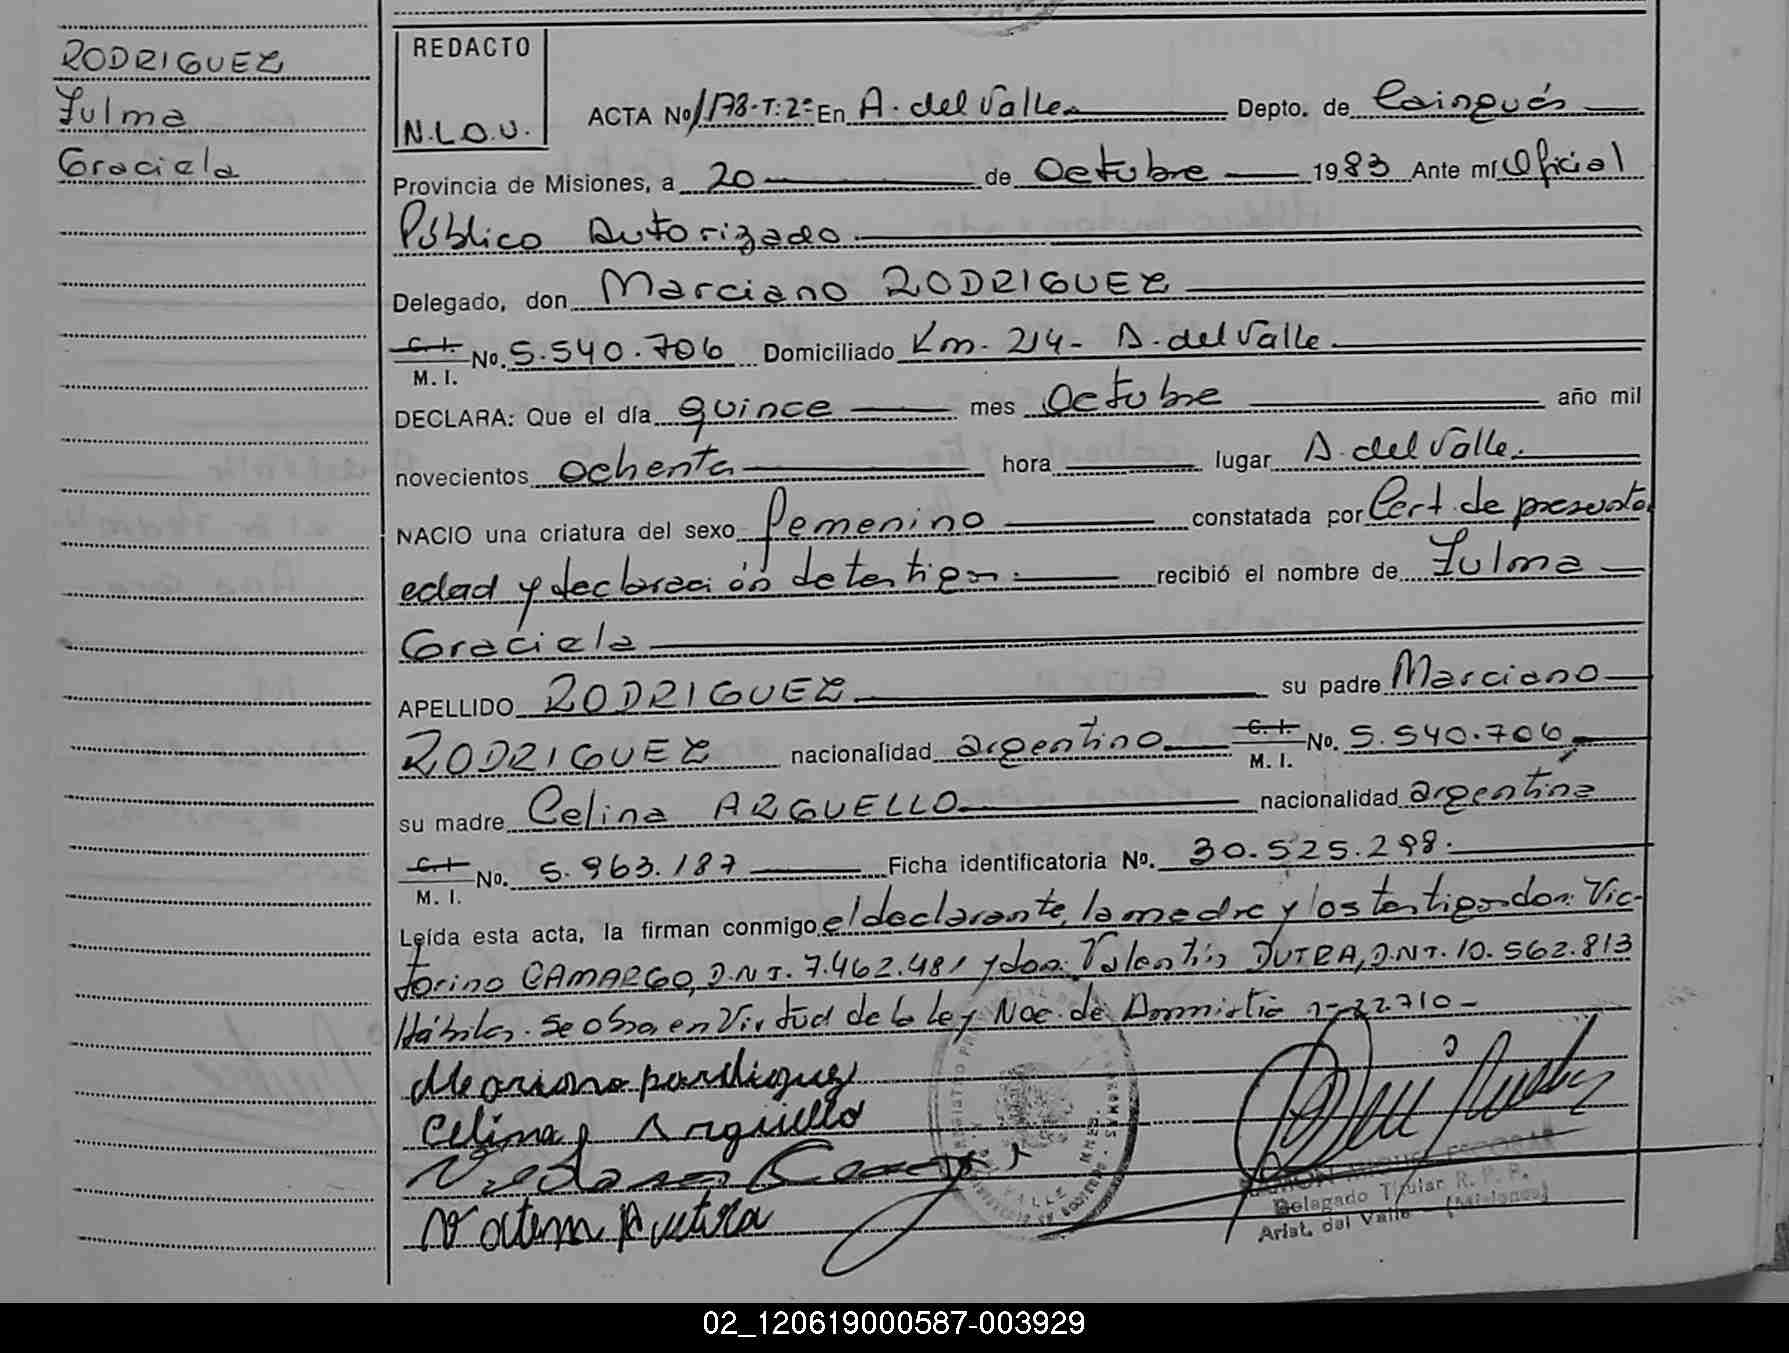 RODRIGUEZ
Zulma
Graciela
REDACTO
N.L.O.U.
ACTA No 178-T:2º En A. del Valle. Depto. de Cainguás
Provincia de Misiones, a 20 de Octubre 1983 Ante mí Oficial
Público Autorizado.
Delegado, don Marciano RODRIGUEZ
C. I.
M. I. No. 5.540.706 Domiciliado Km. 214- A. del Valle.
DECLARA: Que el día quince mes Octubre año mil
novecientos ochenta hora lugar A. del Valle.
NACIO una criatura del sexo femenino constatada por Cert. de presunta
edad y declaración de testigos. recibió el nombre de Zulma
Graciela
APELLIDO RODRIGUEZ su padre Marciano
RODRIGUEZ nacionalidad argentino C. I. M. I. No. 5.540.706,
su madre Celina ARGUELLO nacionalidad argentina
C. I.
M. I. No. 5.963.187 Ficha identificatoria No. 30.525.298.
Leída esta acta, la firman conmigo el declarante, la madre y los testigos don: Vic-
torino CAMARGO, D.N.I. 7.462.481 y don: Valentín DUTRA, D.N.I. 10.562.813
Hábiles. Se obra en Virtud de la ley Nac. de Amnistía nº 22710-
Celina Arguello
Delegado Titular R. P. P.
Arist. del Valle (Misiones)
02_120619000587-003929